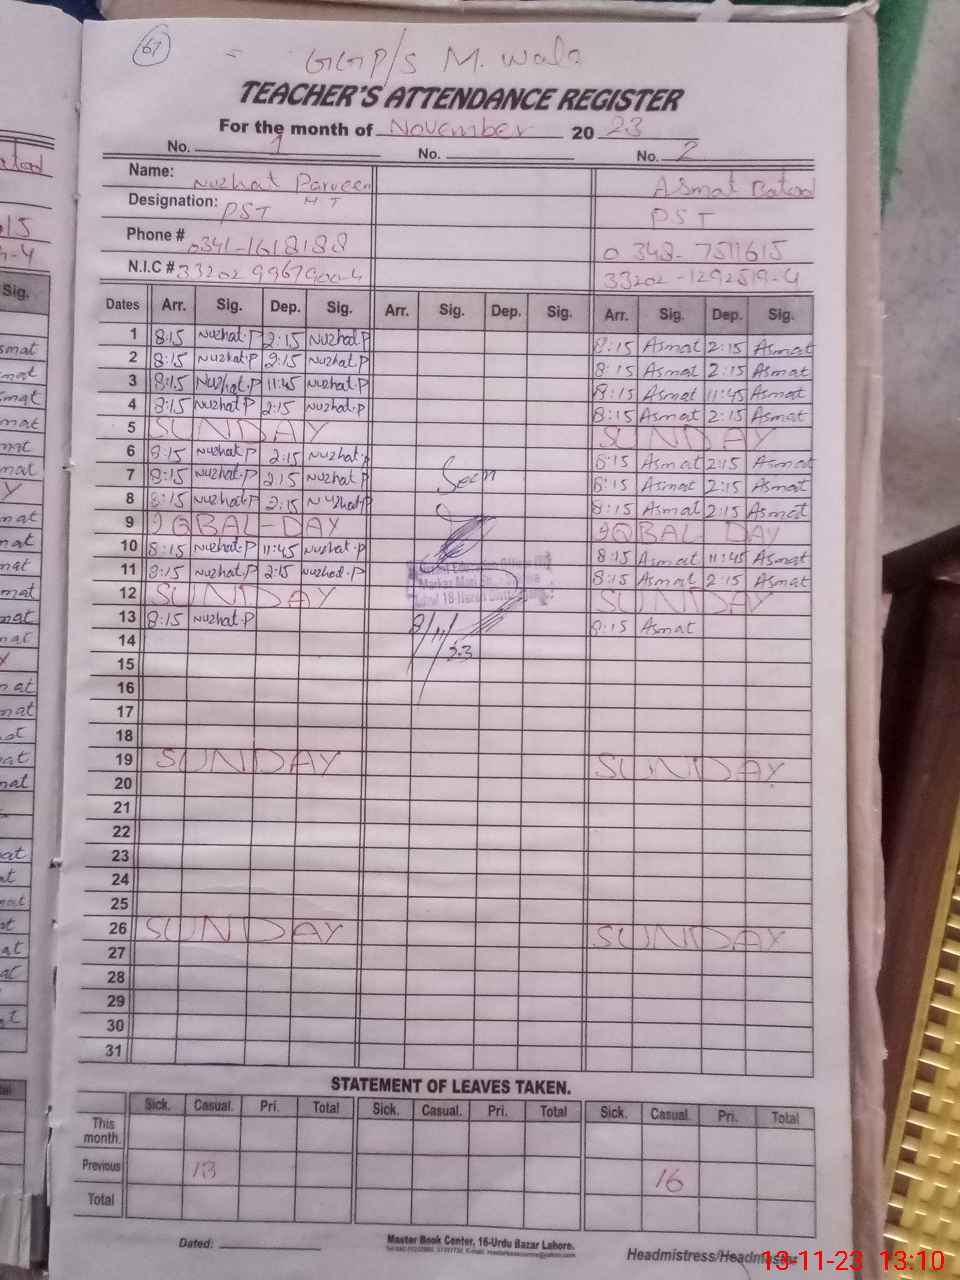 67
= GGP/S M. Wala
TEACHER'S ATTENDANCE REGISTER
For the month of November 2023
No. 1 No. No. 2
Name: Nuzhat Parveen Asmat Batool
Designation: PST HT PST
Phone # 0341-1618188 0348-7511615
N.I.C # 33202 9967900-4 33202-1292519-4
Dates Arr. Sig. Dep. Sig. Arr. Sig. Dep. Sig. Arr. Sig. Dep. Sig.
1 8:15 Nuzhat.P 2:15 Nuzhat.P 8:15 Asmat 2:15 Asmat
2 8:15 Nuzhat.P 2:15 Nuzhat.P 8:15 Asmat 2:15 Asmat
3 8:15 Nuzhat.P 11:45 Nuzhat.P 8:15 Asmat 11:45 Asmat
4 8:15 Nuzhat.P 2:15 Nuzhat.P 8:15 Asmat 2:15 Asmat
5 SUNDAY SUNDAY
6 8:15 Nuzhat.P 2:15 Nuzhat.P 8:15 Asmat 2:15 Asmat
7 8:15 Nuzhat.P 2:15 Nuzhat.P Seen 8:15 Asmat 2:15 Asmat
8 8:15 Nuzhat.P 2:15 Nuzhat.P 8:15 Asmat 2:15 Asmat
9 IQBAL-DAY IQBAL-DAY
10 8:15 Nuzhat.P 11:45 Nuzhat.P 8:15 Asmat 11:45 Asmat
11 8:15 Nuzhat.P 2:15 Nuzhat.P 8:15 Asmat 2:15 Asmat
12 SUNDAY SUNDAY
13 8:15 Nuzhat.P 8/11/23 8:15 Asmat
14
15
16
17
18
19 SUNDAY SUNDAY
20
21
22
23
24
25
26 SUNDAY SUNDAY
27
28
29
30
31
STATEMENT OF LEAVES TAKEN.
Sick. Casual. Pri. Total Sick. Casual. Pri. Total Sick. Casual. Pri. Total
This month.
Previous 13 16
Total
Dated:
Master Book Center, 16-Urdu Bazar Lahore.
Headmistress/Headmaster
13-11-23 13:10